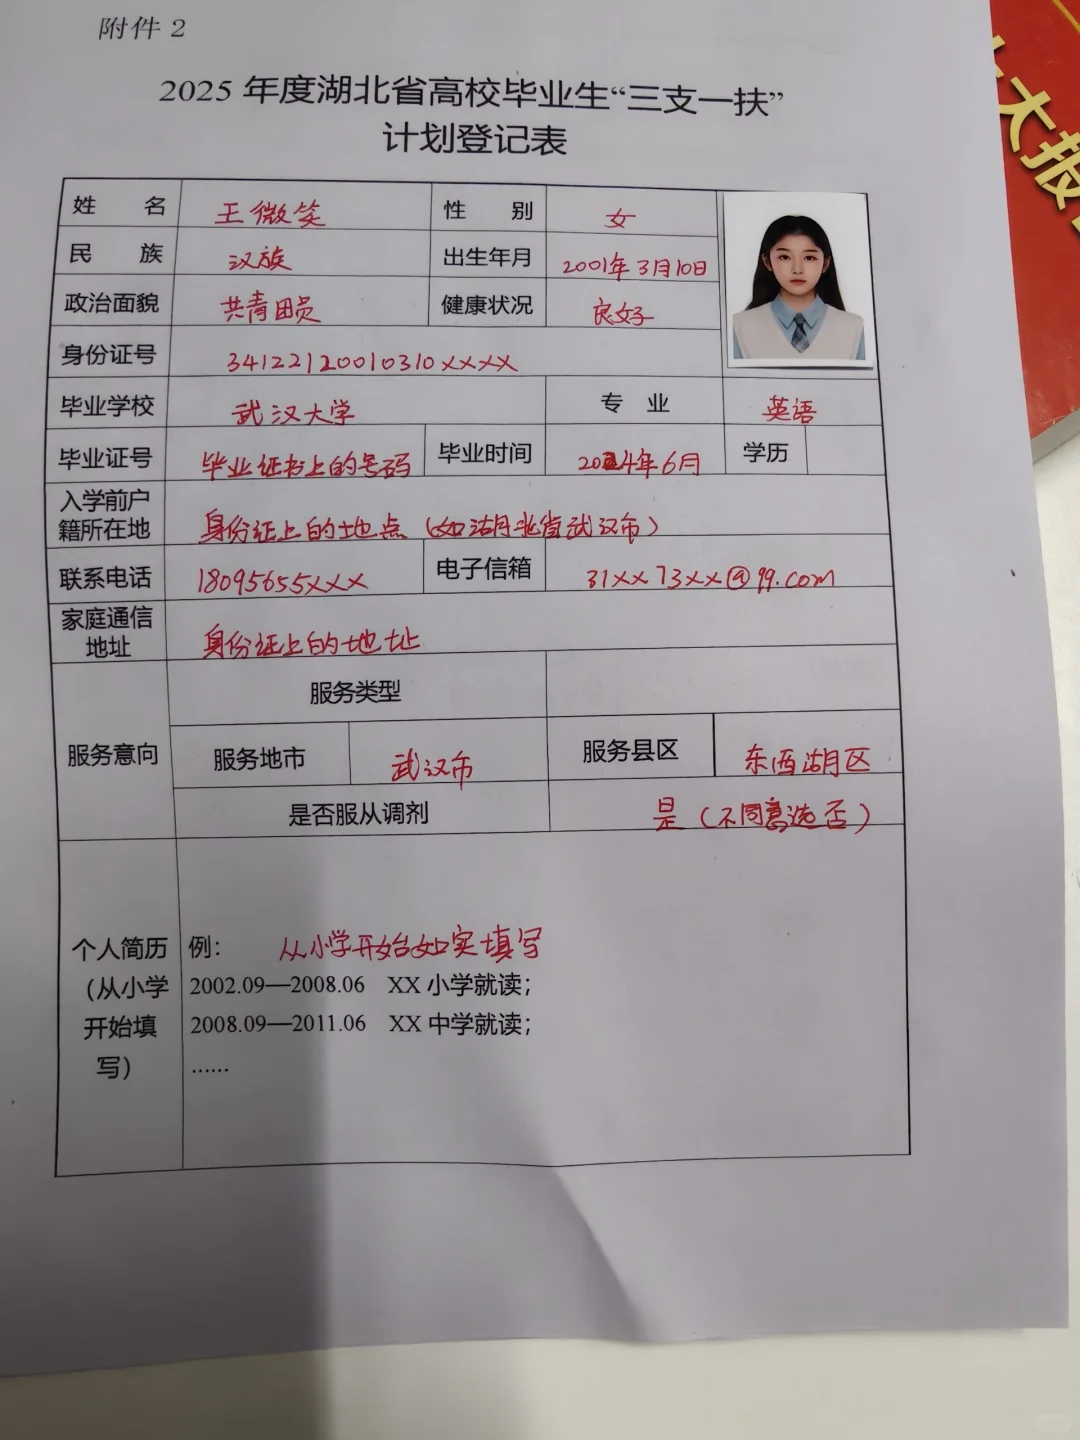 附件 2
2025 年度湖北省高校毕业生“三支一扶”
计划登记表
姓 名 王微笑 性 别 女
民 族 汉族 出生年月 2001年3月10日
政治面貌 共青团员 健康状况 良好
身份证号 34122120010310××××
毕业学校 武汉大学 专 业 英语
毕业证号 毕业证书上的号码 毕业时间 2024年6月 学历
入学前户
籍所在地 身份证上的地点（如湖北省武汉市）
联系电话 18095655××× 电子信箱 31××73××@qq.com
家庭通信
地址 身份证上的地址
服务意向 服务类型
服务地市 武汉市 服务县区 东西湖区
是否服从调剂 是（不同意选否）
个人简历 例： 从小学开始如实填写
（从小学 2002.09—2008.06 XX 小学就读；
开始填 2008.09—2011.06 XX 中学就读；
写） ……
大报